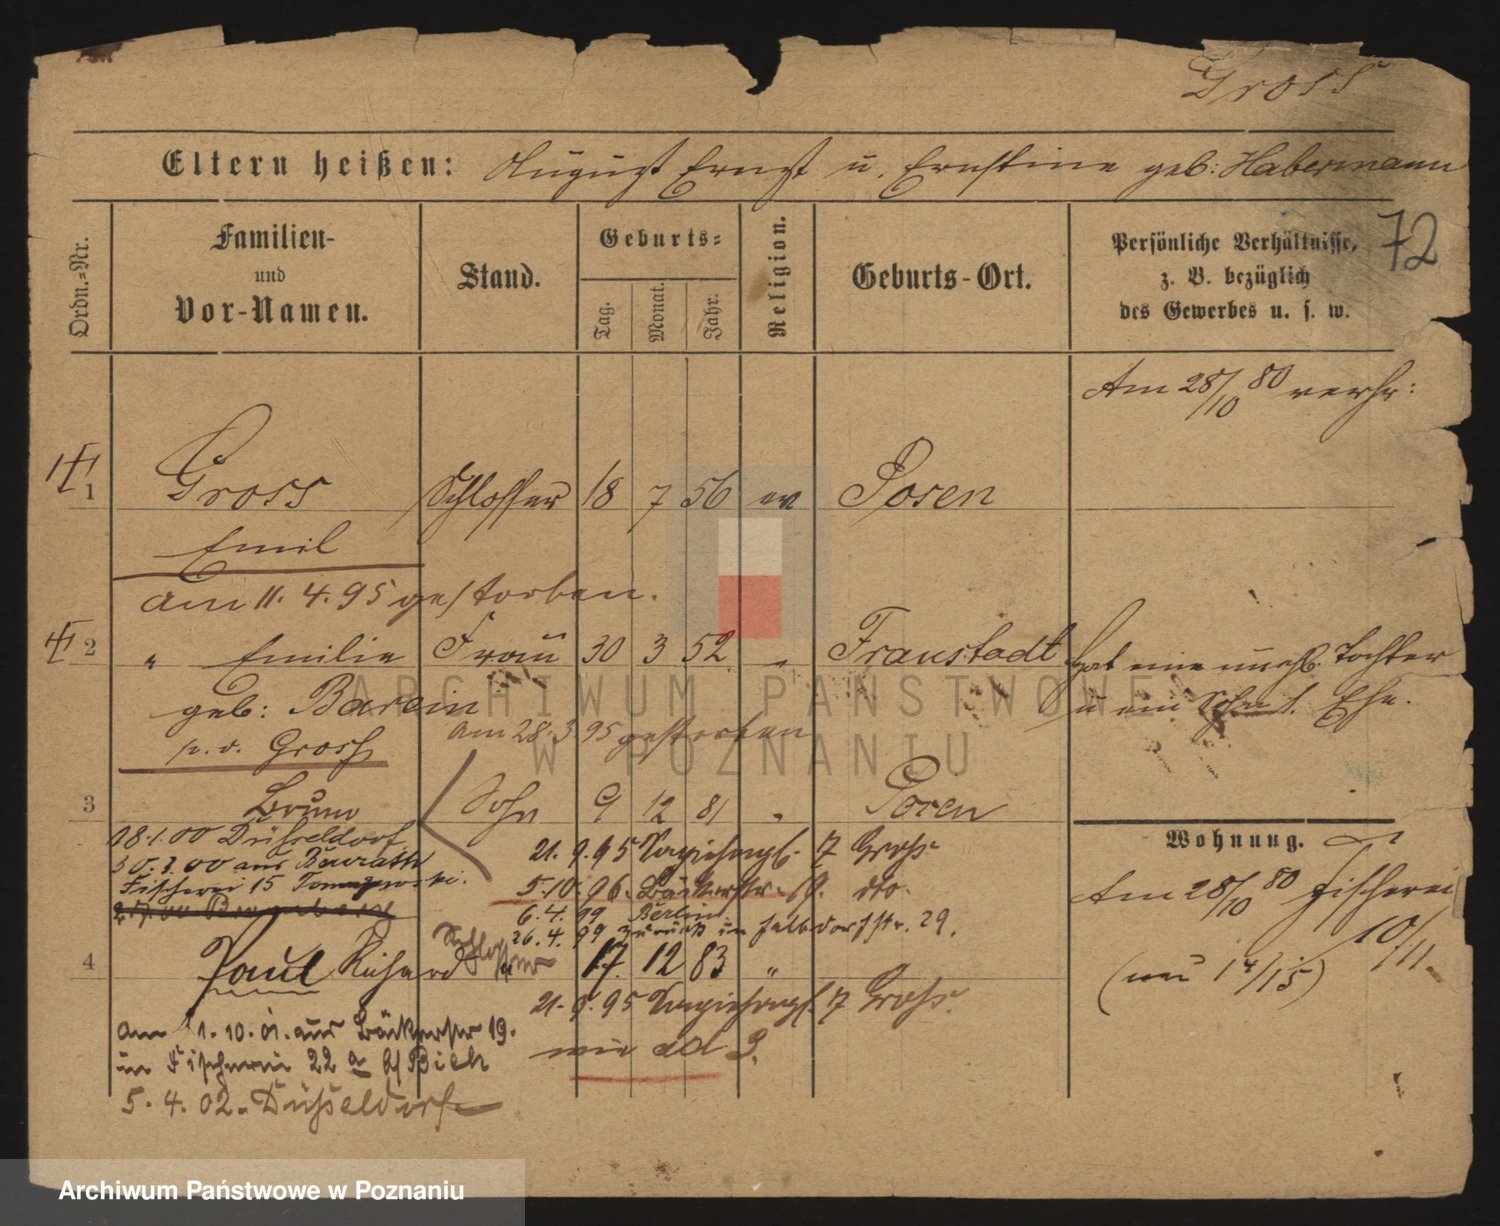 Gross
Eltern heißen: August Ernst u. Ernstine geb: Habermann
72
Ordn.-Nr.
Familien-
und
Vor-Namen.
Stand.
Geburts-
Tag.
Monat.
Jahr.
Religion.
Geburts-Ort.
Persönliche Verhältnisse,
z. B. bezüglich
des Gewerbes u. s. w.
Am 28/10 80 verhr:
1 Gross Schlosser 18 7 56 ev Posen
Emil
am 11. 4. 95 gestorben.
2 " Emilie Frau 30 3 52 " Fraustadt hat eine unehl. Tochter
geb: Barein u ein Sohn Ehe.
am 28. 3 95 gestorben
Gross
3 Bruno Sohn 9 12 81 " Posen
18.1.00 Düsseldorf
30.3.00 aus
Fischerei 15
21. 9. 95 17 Gross
5.10. 96. Bäckerstr. 19. dto.
6. 4. 99 Berlin
26. 4. 99 zurück in 29.
Wohnung.
Am 28/10 80 Fischerei
10/11
(neu 14/15)
4 Paul Richard Schlosser 17. 12 83 "
21. 9. 95 17 Gross.
wie ad 3.
am 1. 10. 01. aus Bäckerstr 19.
in Fischerei 22 a b/
5. 4. 02. Düsseldorf
ARCHIWUM PAŃSTWOWE
W POZNANIU
Archiwum Państwowe w Poznaniu